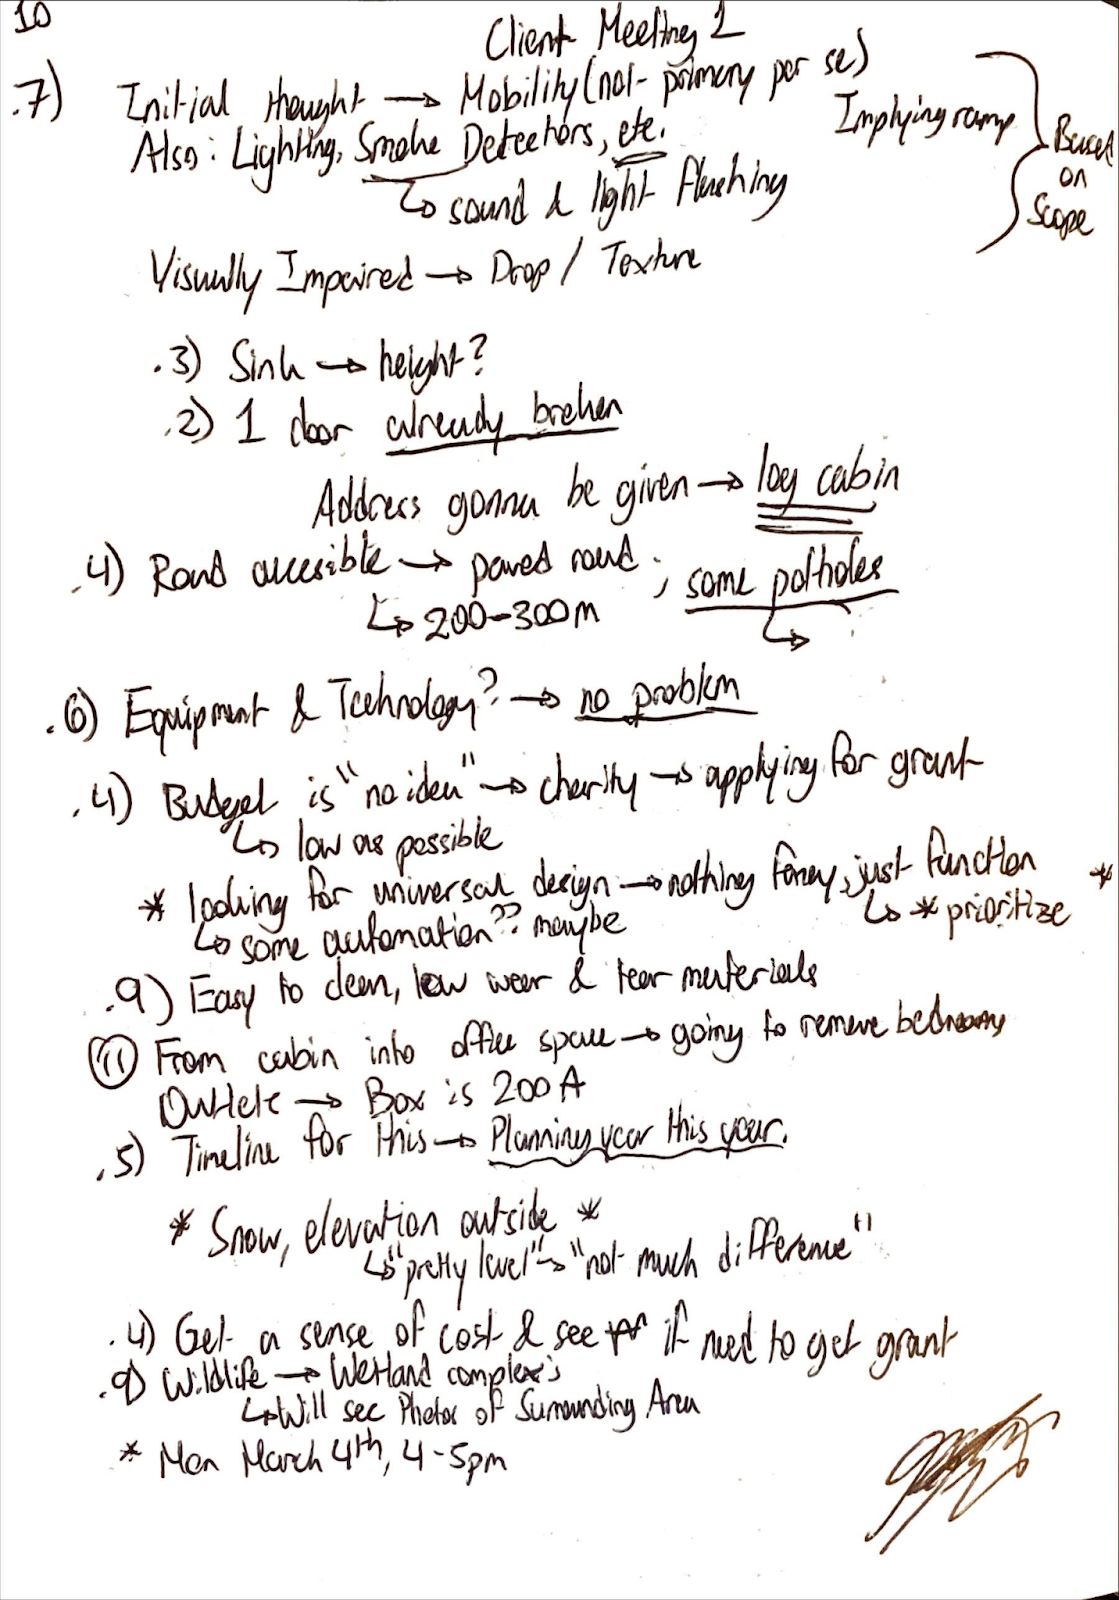 10
Client Meeting 1
.7) Initial thought → Mobility (not primary per se)
Implying ramp
Also: Lighting, Smoke Detectors, etc.
Based
on
Scope
↳ sound & light flashing
Visually Impaired → Drop / Texture
.3) Sink → height?
.2) 1 door already broken
Address gonna be given → log cabin
.4) Road accesible → paved road ; some potholes
↳ 200-300m ↳
.6) Equipment & Technology? → no problem
.4) Budget is "no idea" → charity → applying for grant
↳ low as possible
* looking for universal design → nothing fancy, just function *
↳ * prioritize
↳ some automation?? maybe
.9) Easy to clean, low wear & tear materials
11) From cabin into office space → going to remove bedrooms
Outlets → Box is 200 A
.5) Timeline for this → Planning year this year.
* Snow, elevation outside *
↳ "pretty level" → "not much difference"
.4) Get a sense of cost & see if need to get grant
.9) Wildlife → Wetland complex's
↳ Will see Photos of Surrounding Area
* Mon March 4th, 4-5pm